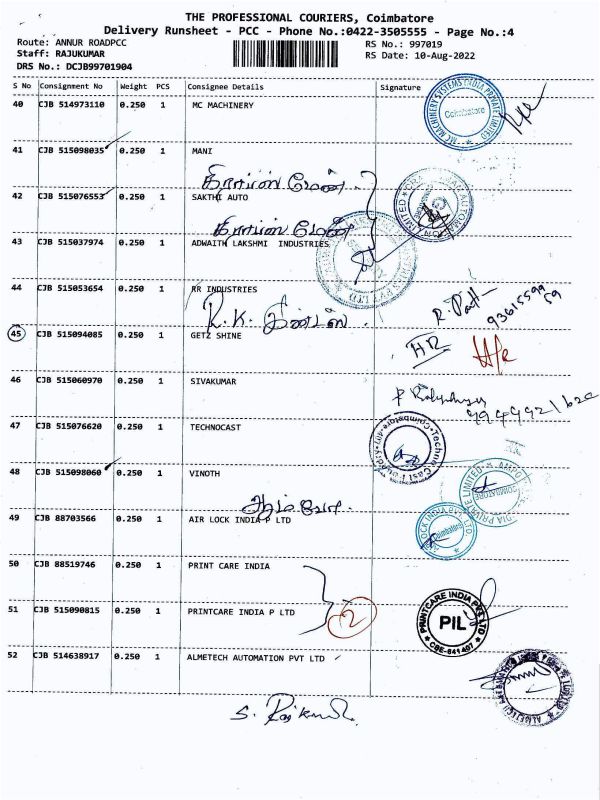 THE PROFESSIONAL COURIERS, Coimbatore
Delivery Runsheet - PCC - Phone No.:0422-3505555 - Page No.:4
Route: ANNUR ROADPCC
RS No.: 997019
Staff: RAJUKUMAR
RS Date: 10-Aug-2022
DRS No.: DCJB99701904
S No Consignment No Weight PCS Consignee Details Signature
40 CJB 514973110 0.250 1 MC MACHINERY
MC MACHINERY SYSTEMS INDIA PRIVATE LIMITED
Coimbatore
41 CJB 515098035 0.250 1 MANI
42 CJB 515076553 0.250 1 SAKTHI AUTO
43 CJB 515037974 0.250 1 ADWAITH LAKSHMI INDUSTRIES
44 CJB 515053654 0.250 1 RR INDUSTRIES
R.K.
9361559959
45 CJB 515094085 0.250 1 GETZ SHINE
HR
46 CJB 515060970 0.250 1 SIVAKUMAR
47 CJB 515076620 0.250 1 TECHNOCAST
48 CJB 515098060 0.250 1 VINOTH
COIMBATORE
49 CJB 88703566 0.250 1 AIR LOCK INDIA P LTD
Coimbatore
50 CJB 88519746 0.250 1 PRINT CARE INDIA
51 CJB 515090815 0.250 1 PRINTCARE INDIA P LTD
2
PRINTCARE INDIA PVT LTD
PIL
CBE-641407
52 CJB 514638917 0.250 1 ALMETECH AUTOMATION PVT LTD